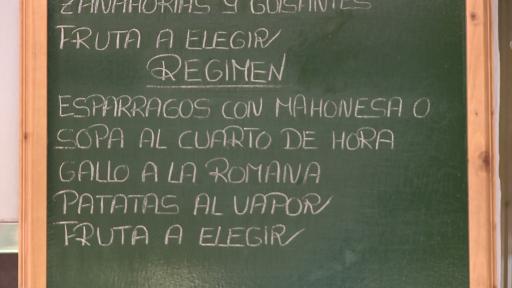 ZANAHORIAS Y GUISANTES
FRUTA A ELEGIR
REGIMEN
ESPARRAGOS CON MAHONESA O
SOPA AL CUARTO DE HORA
GALLO A LA ROMANA
PATATAS AL VAPOR
FRUTA A ELEGIR